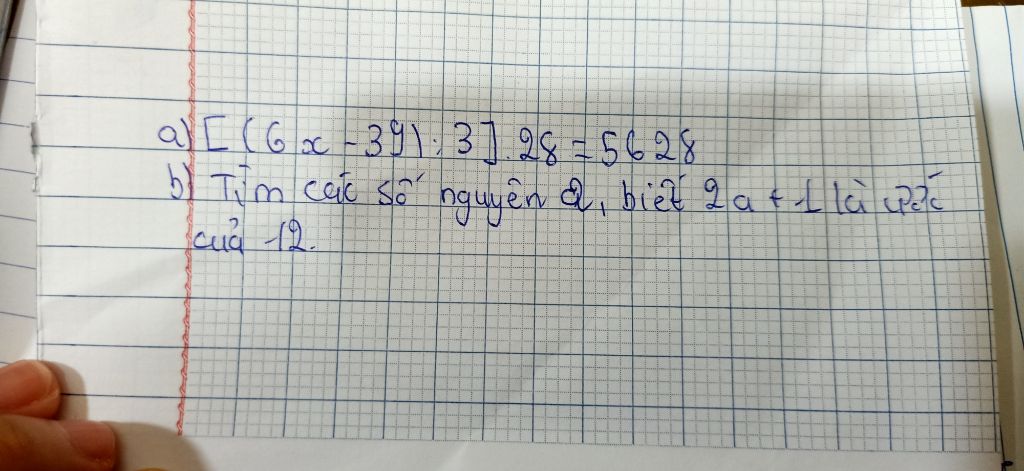 a) [(6x - 39) : 3] . 28 = 5628
b) Tìm các số nguyên a, biết 2a + 1 là ước
của -12.